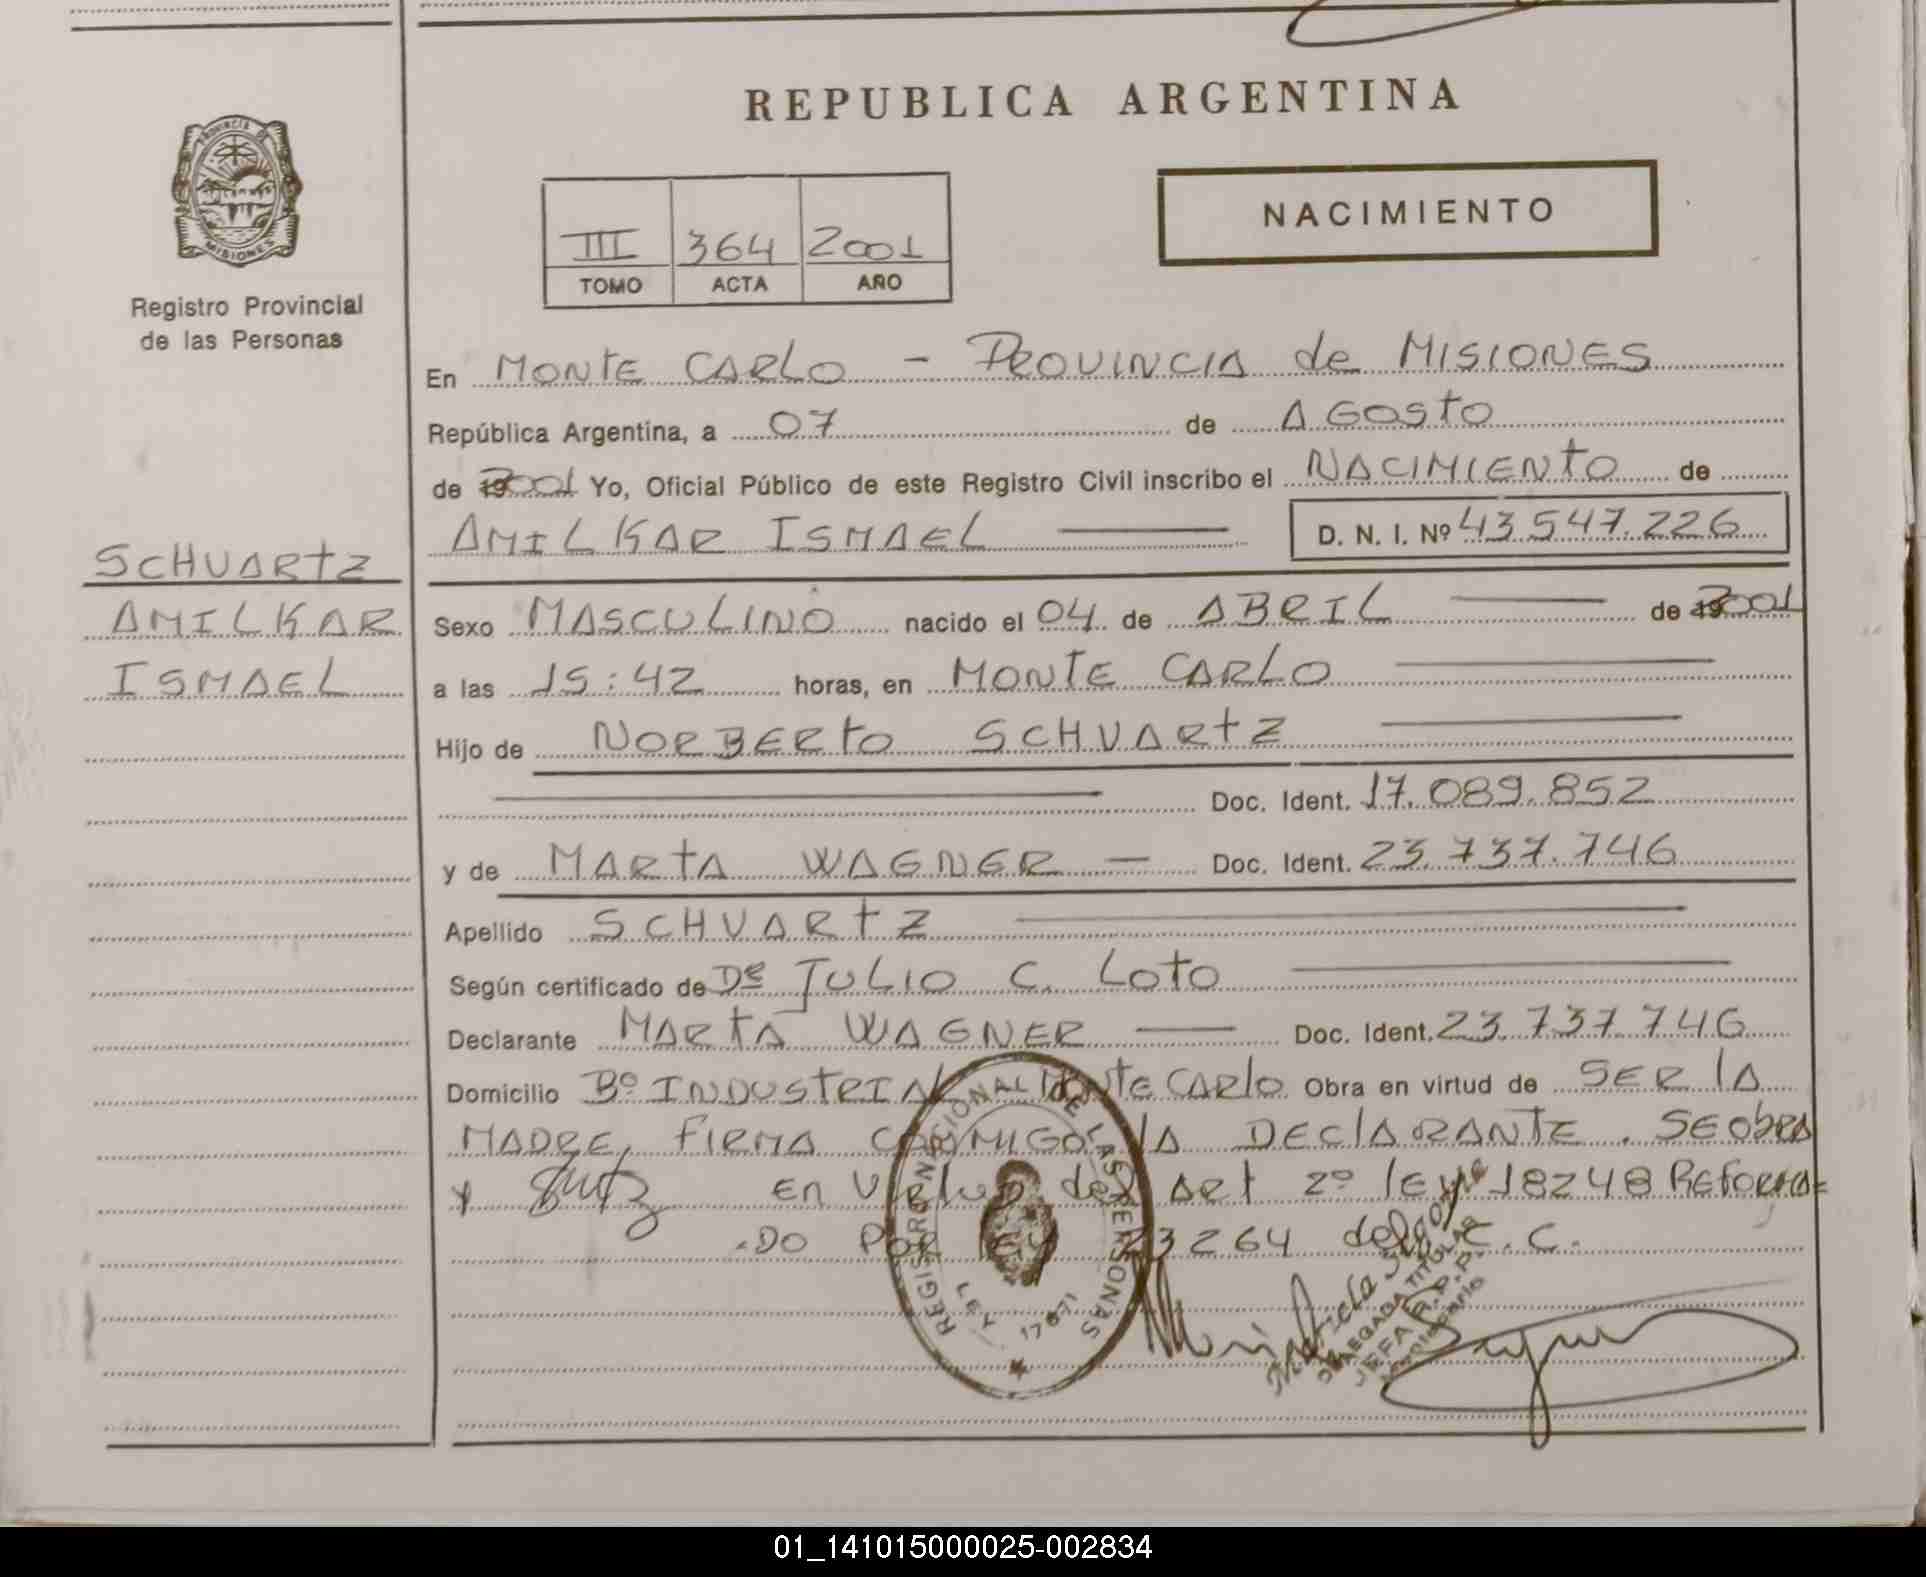 REPUBLICA ARGENTINA
PROVINCIA DE
MISIONES
Registro Provincial
de las Personas
NACIMIENTO
III 364 2001
TOMO ACTA AÑO
En MONTE CARLO - PROVINCIA de MISIONES
República Argentina, a 07 de AGOSTO
de 2001 Yo, Oficial Público de este Registro Civil inscribo el NACIMIENTO de
AMILKAR ISMAEL D. N. I. Nº 43.547.226
SCHVARTZ
AMILKAR
ISMAEL
Sexo MASCULINO nacido el 04 de ABRIL de 2001
a las 15:42 horas, en MONTE CARLO
Hijo de NORBERTO SCHVARTZ
Doc. Ident. 17.089.852
y de MARTA WAGNER — Doc. Ident. 23.737.746
Apellido SCHVARTZ
Según certificado de Dº JULIO C. LOTO
Declarante MARTA WAGNER — Doc. Ident. 23.737.746
Domicilio Bº INDUSTRIAL MONTE CARLO Obra en virtud de SER lA
MADRE, FIRMA CONMIGO lA DEClARANTE. SE ObRA
y en Virtud del Art 2º lEy 18248 REFORMA=
.DO POR LEY 23264 del C.C.
REGISTRO NACIONAL DE LAS PERSONAS
LEY 17671
DELEGADA TITULAR
JEFA R.P.P.
01_141015000025-002834